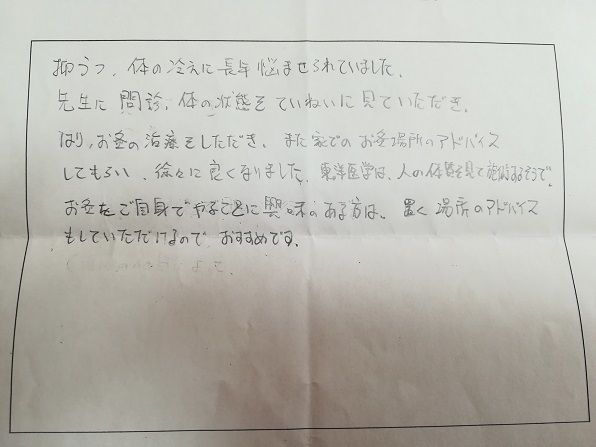 抑うつ、体の冷えに長年悩ませられていました。
先生に問診、体の状態をていねいに見ていただき、
はり、お灸の治療をしただき、また家でのお灸場所のアドバイス
してもらい、徐々に良くなりました。東洋医学は、人の体質を見て施術するそうで、
お灸をご自身でやることに興味のある方は、置く場所のアドバイス
もしていただけるので、おすすめです。